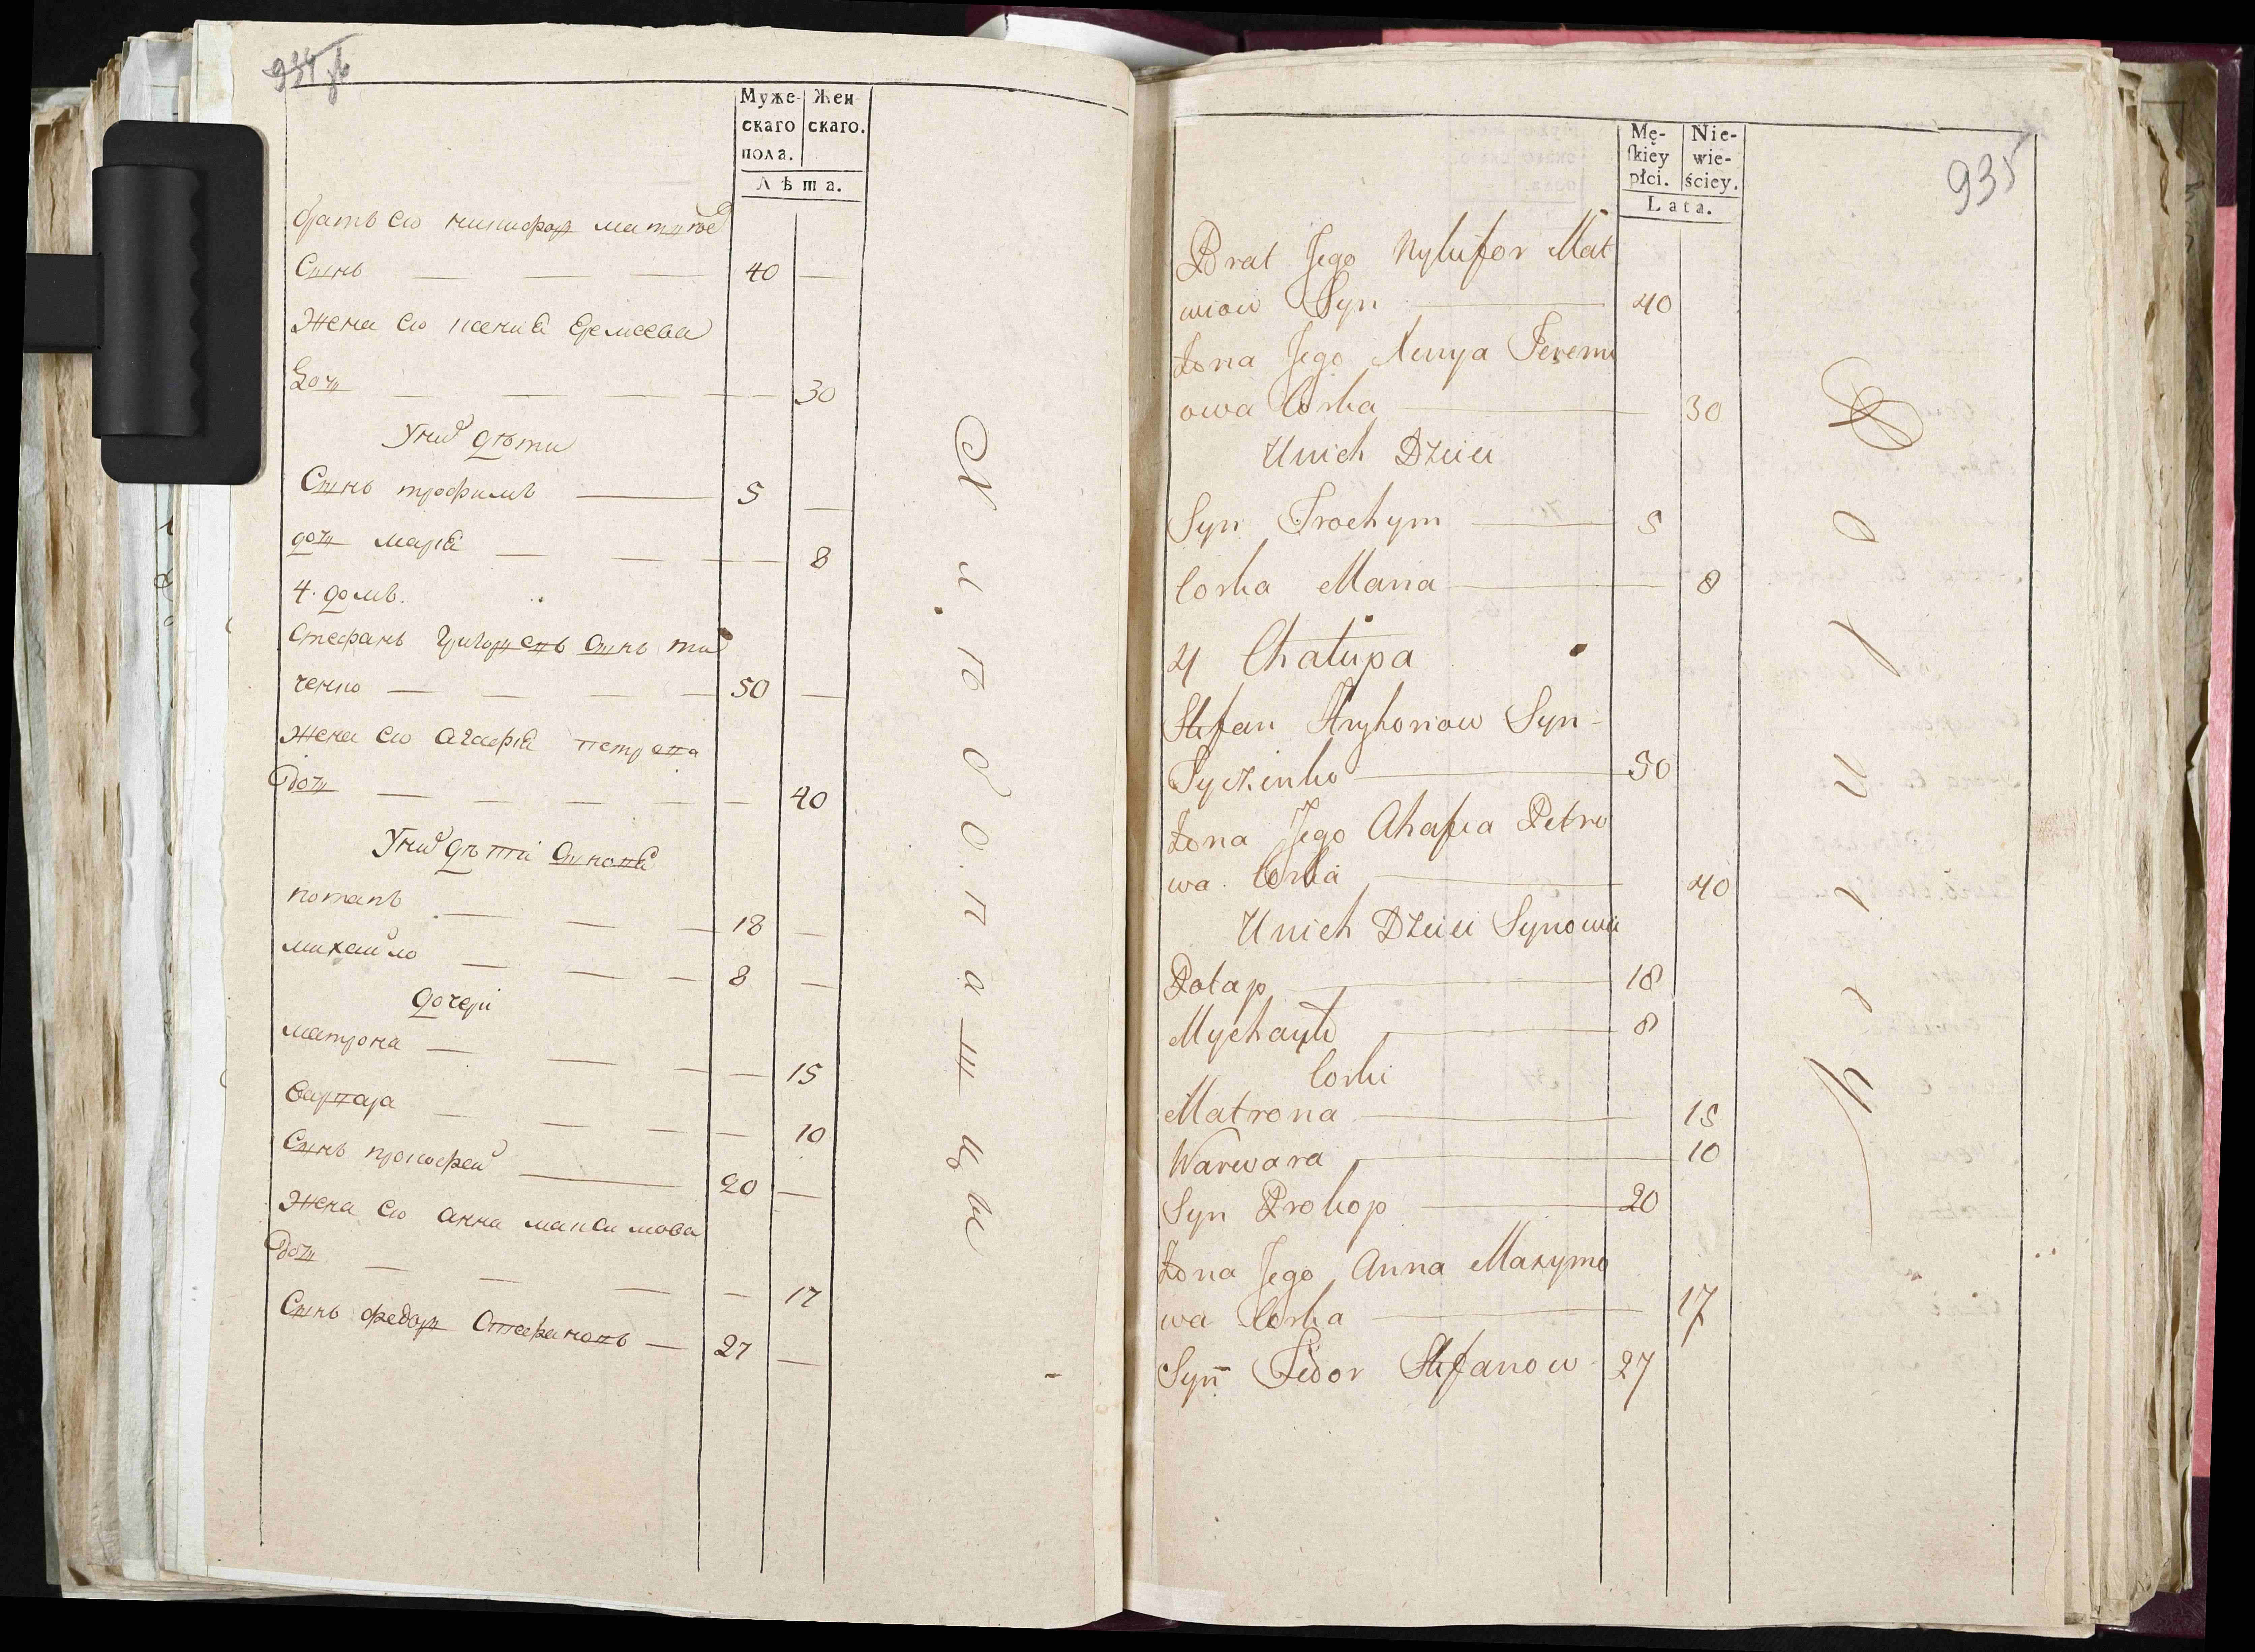 934 об
Муже- Жен-
скаго скаго.
пола.
Лѣта.
братъ его никифоръ матвѣе
Сынъ 40
Жена его ксениа Еремеева
Дочь 30
Уних дѣти
Сынъ трофимъ 5
дочь мариа 8
4. домъ.
Стефанъ Григоревъ Сынъ ти
ченко 50
Жена его агафиа петрова
Дочь 40
Уних дѣти Сыновиа
потапъ 18
михайло 8
дочери
матрона 15
варвара 10
Сынъ прокофей 20
Жена его анна максимова
Дочь 17
Сынъ федоръ Стефановъ 27
935
Mę- Nie-
skiey wie-
płci. ściey.
Lata.
Brat Jego Nykifor Mat
wiow Syn 40
Żona Jego Xenya Jeremi
owa Corka 30
Unich Dzieci
Syn Trochym 5
Corka Maria 8
4 Chałupa
Stefan Hryhoriow Syn
Tyczenko 50
Żona Jego Ahafia Petro
wa Corka 40
Unich Dzieci Synowie
Potap 18
Mychayło 8
Corki
Matrona 15
Warwara 10
Syn Prokop 20
Żona Jego Anna Maxymo
wa Corka 17
Syn Fedor Stefanow 27